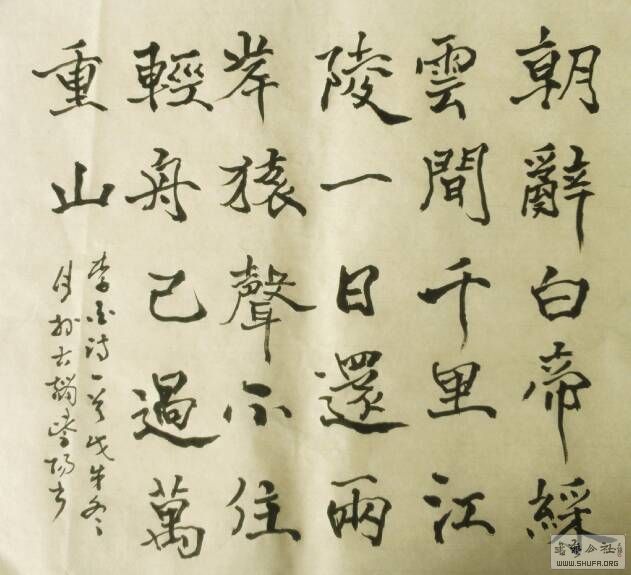 朝辭白帝綵
雲間千里江
陵一日還兩
岸猿聲不住
輕舟已過萬
重山
李白詩一首戊冬
月於古陽書
WWW.SHUFA.ORG